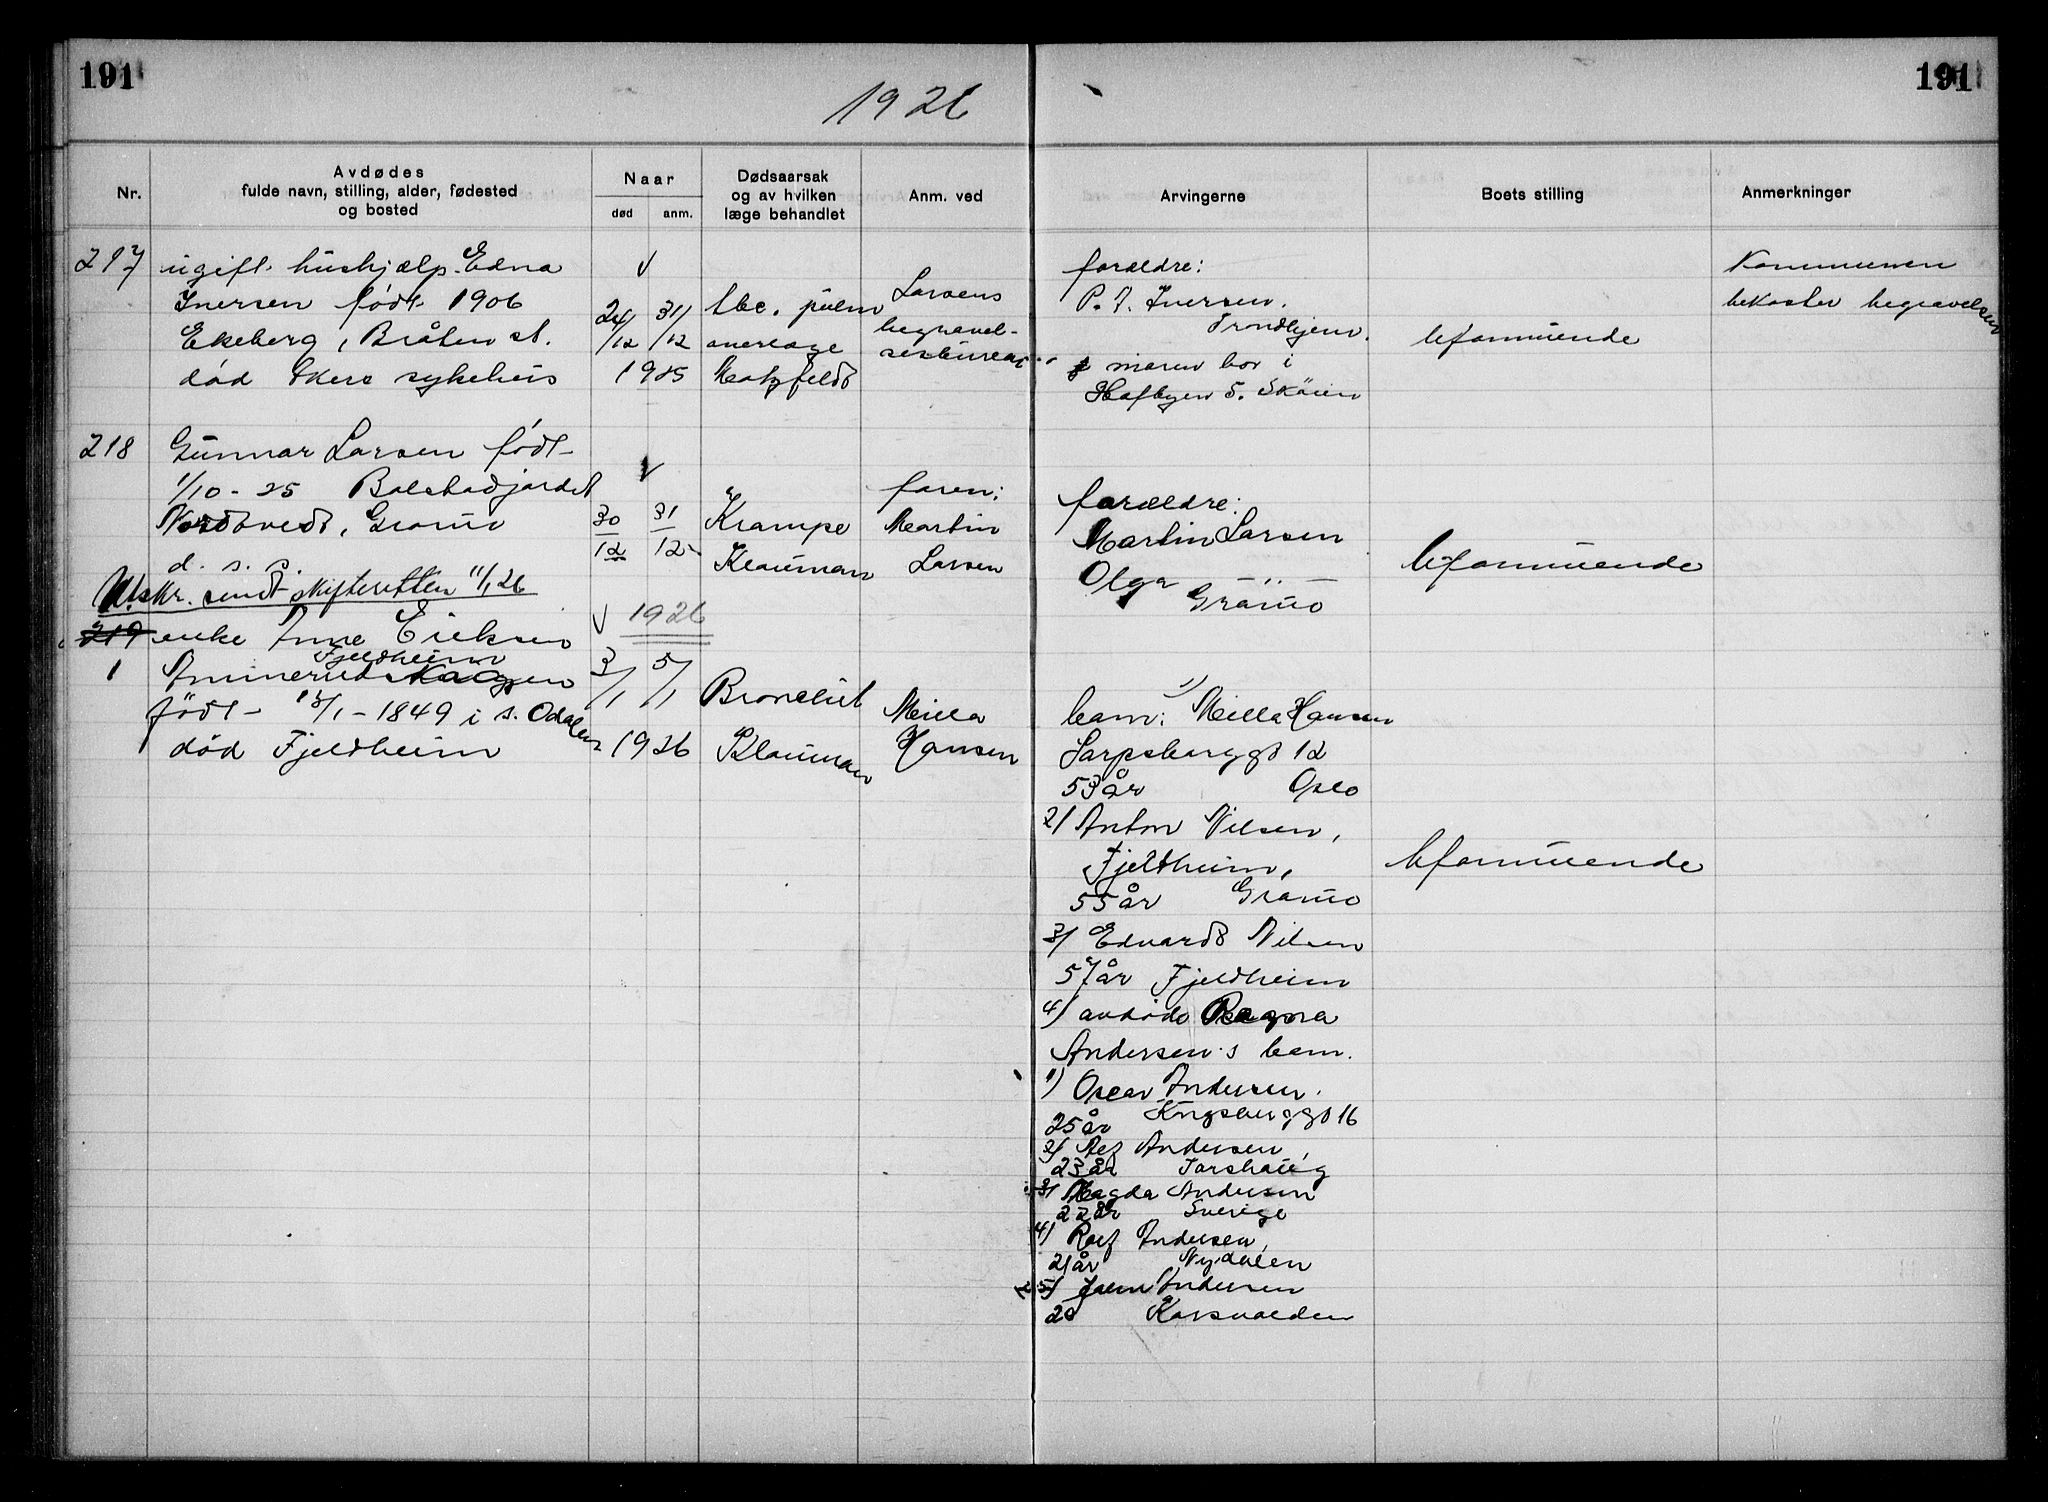 191
191
1926
Nr.
Avdødes
fulde navn, stilling, alder, fødested
og bosted
Naar
død
anm.
Dødsaarsak
og av hvilken
læge behandlet
Anm. ved
Arvingerne
Boets stilling
Anmerkninger
217
ugift hushjælp Edna
Iversen født 1906
Ekeberg, Bråten st.
død Akers sykehus
24/12 31/12
1925
tbc. pulm
overlæge
Larsens
begravel-
sesbureau
forældre:
P. Iversen.
Trondhjem.
moren bor i
Hafbyen S. Skøien
Uformuende
Kommunen
bekoster begravelsen
218
Gunnar Larsen født
1/10 - 25 Bolstadjordet
Nordtvedt, Grorud
d. s. s.
30/12 31/12
Krampe
Klouman
faren:
Martin
Larsen
forældre:
Martin Larsen
Olga "
Grorud
Uformuende
Utskr. sendt skifteretten 11/1 26
1926
219
1
enke Anne Eriksen
Fjeldheim
født 13/1 - 1849 i s. Odalen
død Fjeldheim
3/1 5/1
1926
Bronchit
Klouman
Milla
Hansen
barn: 1) Milla Hansen
Sarpsborggt 12
53 år Oslo
2) Anton Nilsen,
Fjeldheim,
55 år Grorud
3) Edvard Nilsen
57 år Fjeldheim
4) avdøde Ragna
Andersen's barn.
1) Oscar Andersen.
25 år Kongsberggt 16
2) Alf Andersen,
23 år Torshaug
3) Magda Andersen
22 år Sverige
4) Rolf Andersen,
21 år Nydalen
5) John Andersen
20 Korsvolden
Uformuende